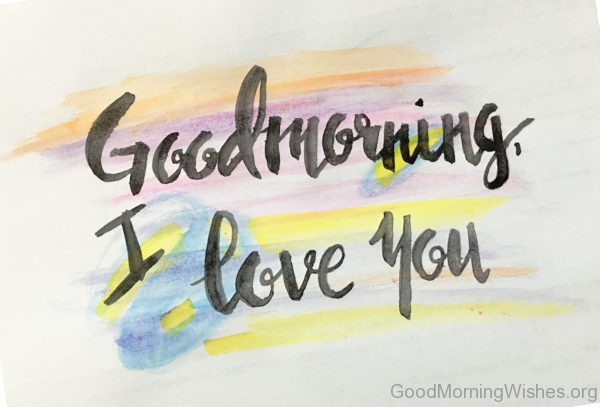 Goodmorning,
I love you
GoodMorningWishes.org